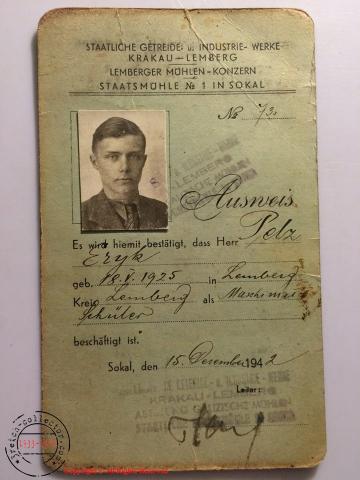 STAATLICHE GETREIDE: u. INDUSTRIE-WERKE
KRAKAU—LEMBERG
LEMBERGER MÜHLEN-KONZERN
STAATSMÜHLE № 1 IN SOKAL
№ 73
LEMBERG
Ausweis
Es wird hiermit bestätigt, dass Herr Pelz
Eryk
geb. 18.V.1925 in Lemberg
Kreis Lemberg als
Schüler
beschäftigt ist.
Sokal, den 15. Dezember 1942
Leiter:
KRAKAU-LEMBERG
1933-19